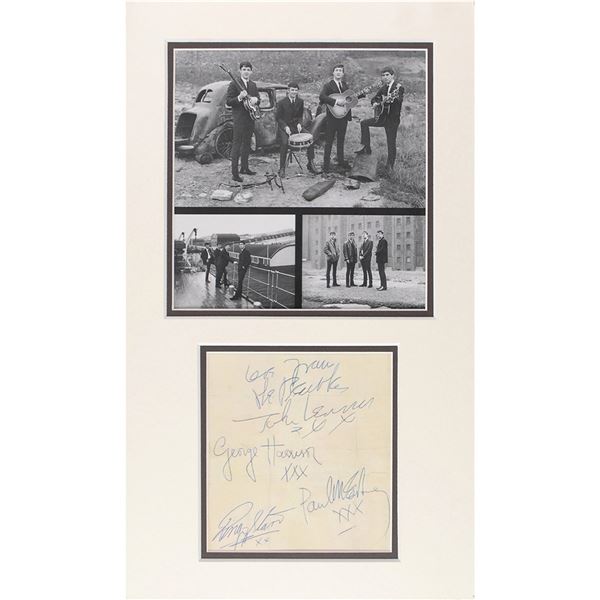 love from
the Beatles
John Lennon
xxx
George Harrison
xxx
Paul McCartney
xxx
Ringo Starr
xx